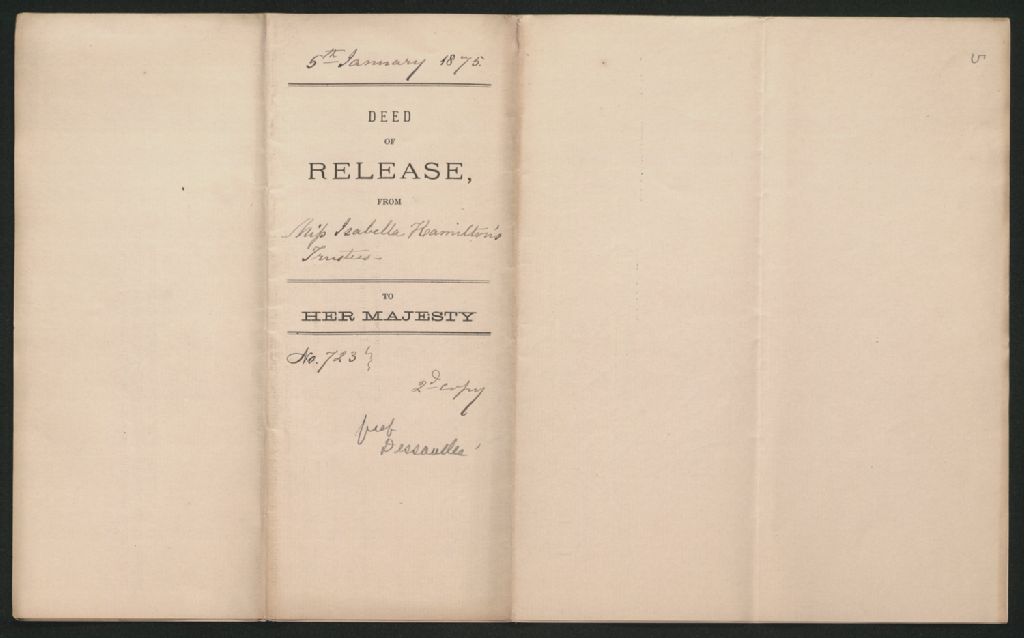 5th January 1875.
DEED
OF
RELEASE,
FROM
Miss Isabella Hamilton's
Trustees -
TO
HER MAJESTY
No. 723
2d copy
Dessaulles